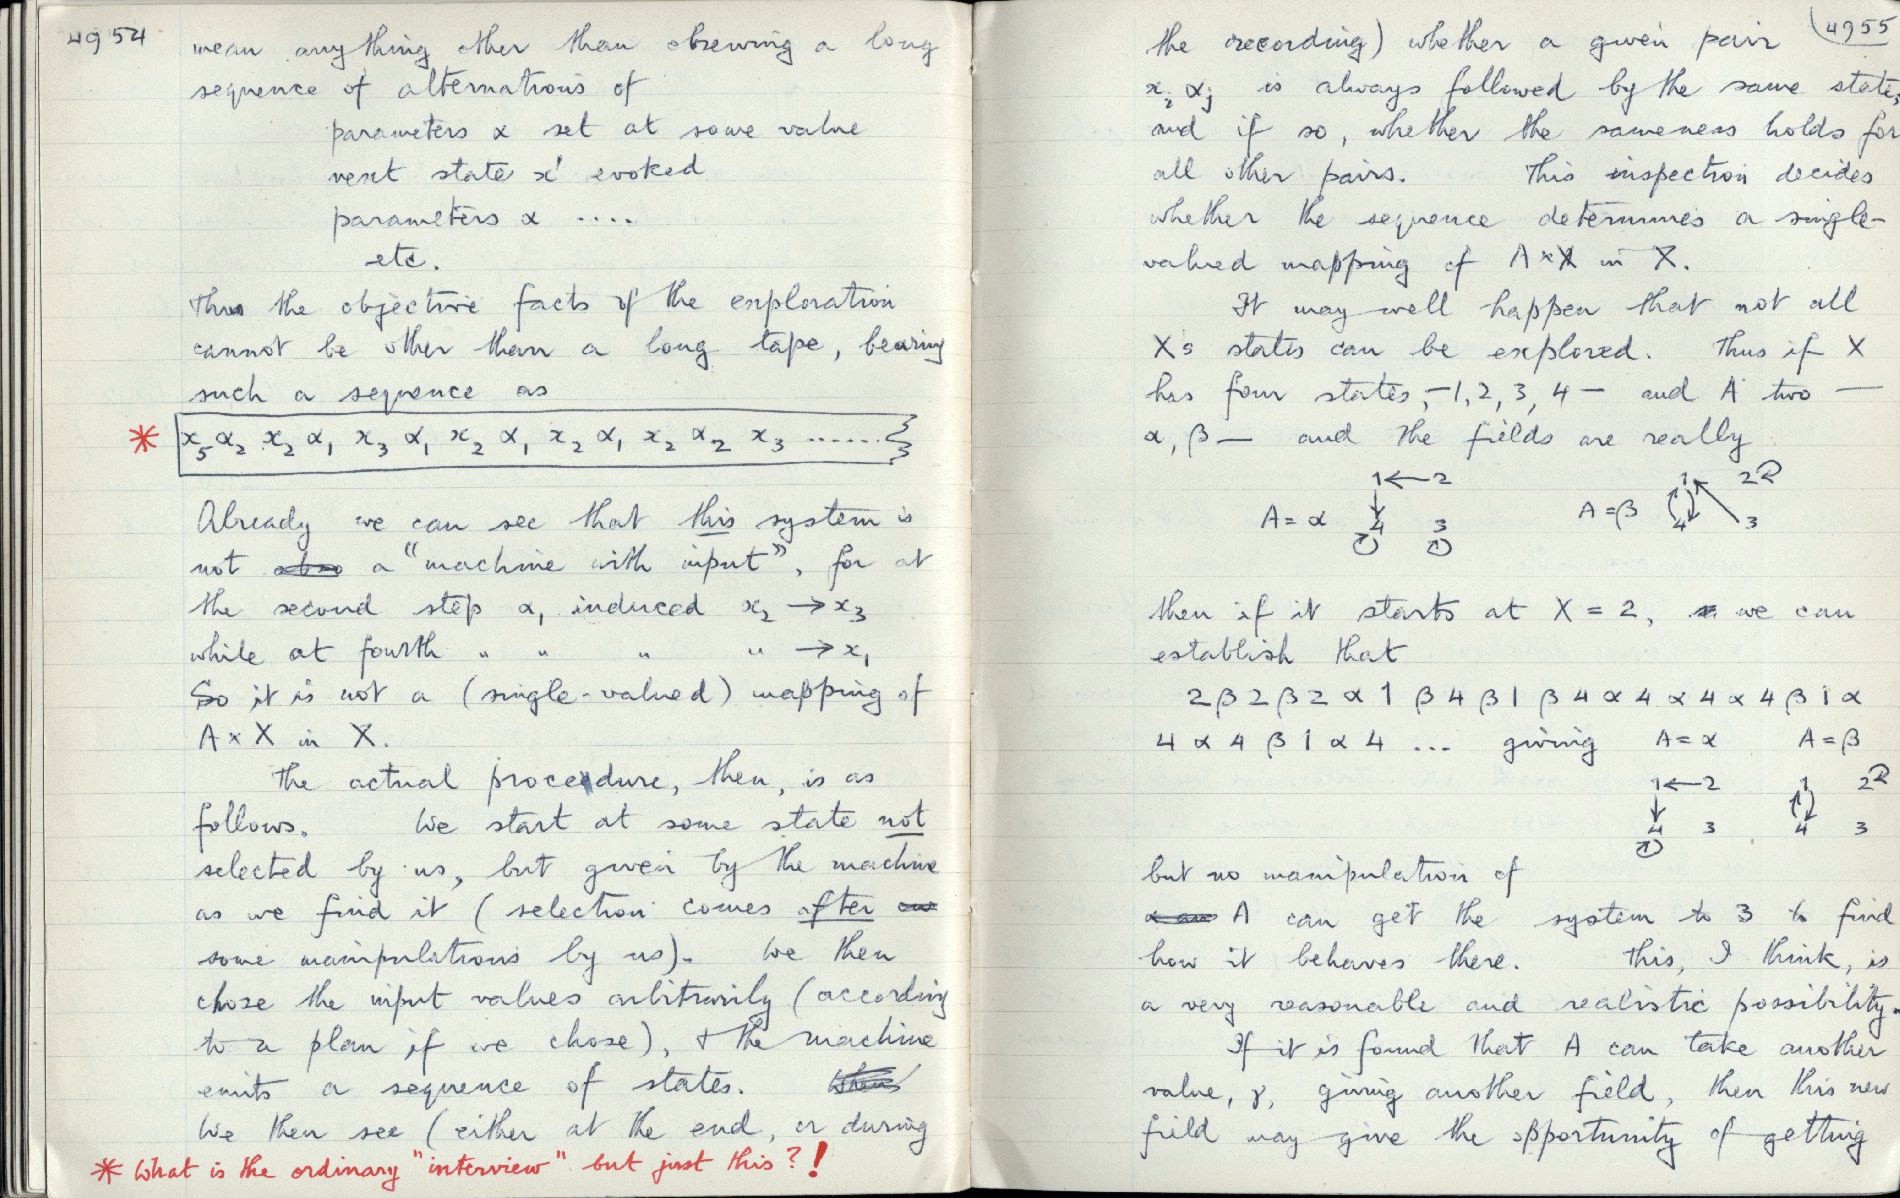 4954
mean anything other than observing a long
sequence of alternations of
parameters α set at some value
next state x' evoked
parameters α ....
etc.
Thus the objective facts of the exploration
cannot be other than a long tape, bearing
such a sequence as
* x₅ α₂ x₂ α₁ x₃ α₁ x₂ α₁ x₂ α₁ x₂ α₂ x₃ .......
Already we can see that this system is
not a "machine with input", for at
the second step α₁ induced x₂ → x₃
while at fourth " " " " → x₁
So it is not a (single-valued) mapping of
A × X in X.
The actual procedure, then, is as
follows. We start at some state not
selected by us, but given by the machine
as we find it (selection comes after
some manipulations by us). We then
chose the input values arbitrarily (according
to a plan if we chose), & the machine
emits a sequence of states.
We then see (either at the end, or during
* What is the ordinary "interview" but just this?!
4955
the recording) whether a given pair
xᵢ αⱼ is always followed by the same state;
and if so, whether the sameness holds for
all other pairs. This inspection decides
whether the sequence determines a single-
valued mapping of A × X in X.
It may well happen that not all
X's states can be explored. Thus if X
has four states, – 1, 2, 3, 4 – and A two –
α, β – and the fields are really
1 ← 2 1 2
A = α ↓ A = β
4 3 4 3
then if it starts at X = 2, we can
establish that
2 β 2 β 2 α 1 β 4 β 1 β 4 α 4 α 4 α 4 β 1 α
4 α 4 β 1 α 4 ... giving A = α A = β
1 ← 2 1 2
↓
4 3 4 3
but no manipulation of
A can get the system to 3 to find
how it behaves there. This, I think, is
a very reasonable and realistic possibility.
If it is found that A can take another
value, γ, giving another field, then this new
field may give the opportunity of getting